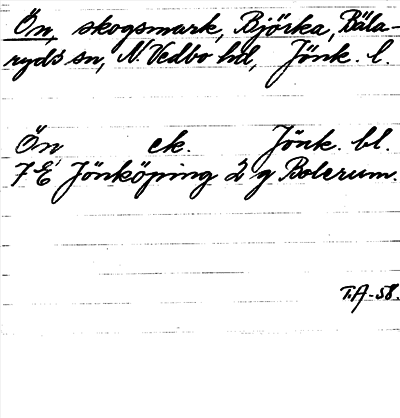 Ön, skogsmark, Björka, Bäla-
ryds sn, N. Vedbo hd, Jönk. l.
Ön ek. Jönk. bl.
7E Jönköping 2 g Bolerum.
T.A-58.